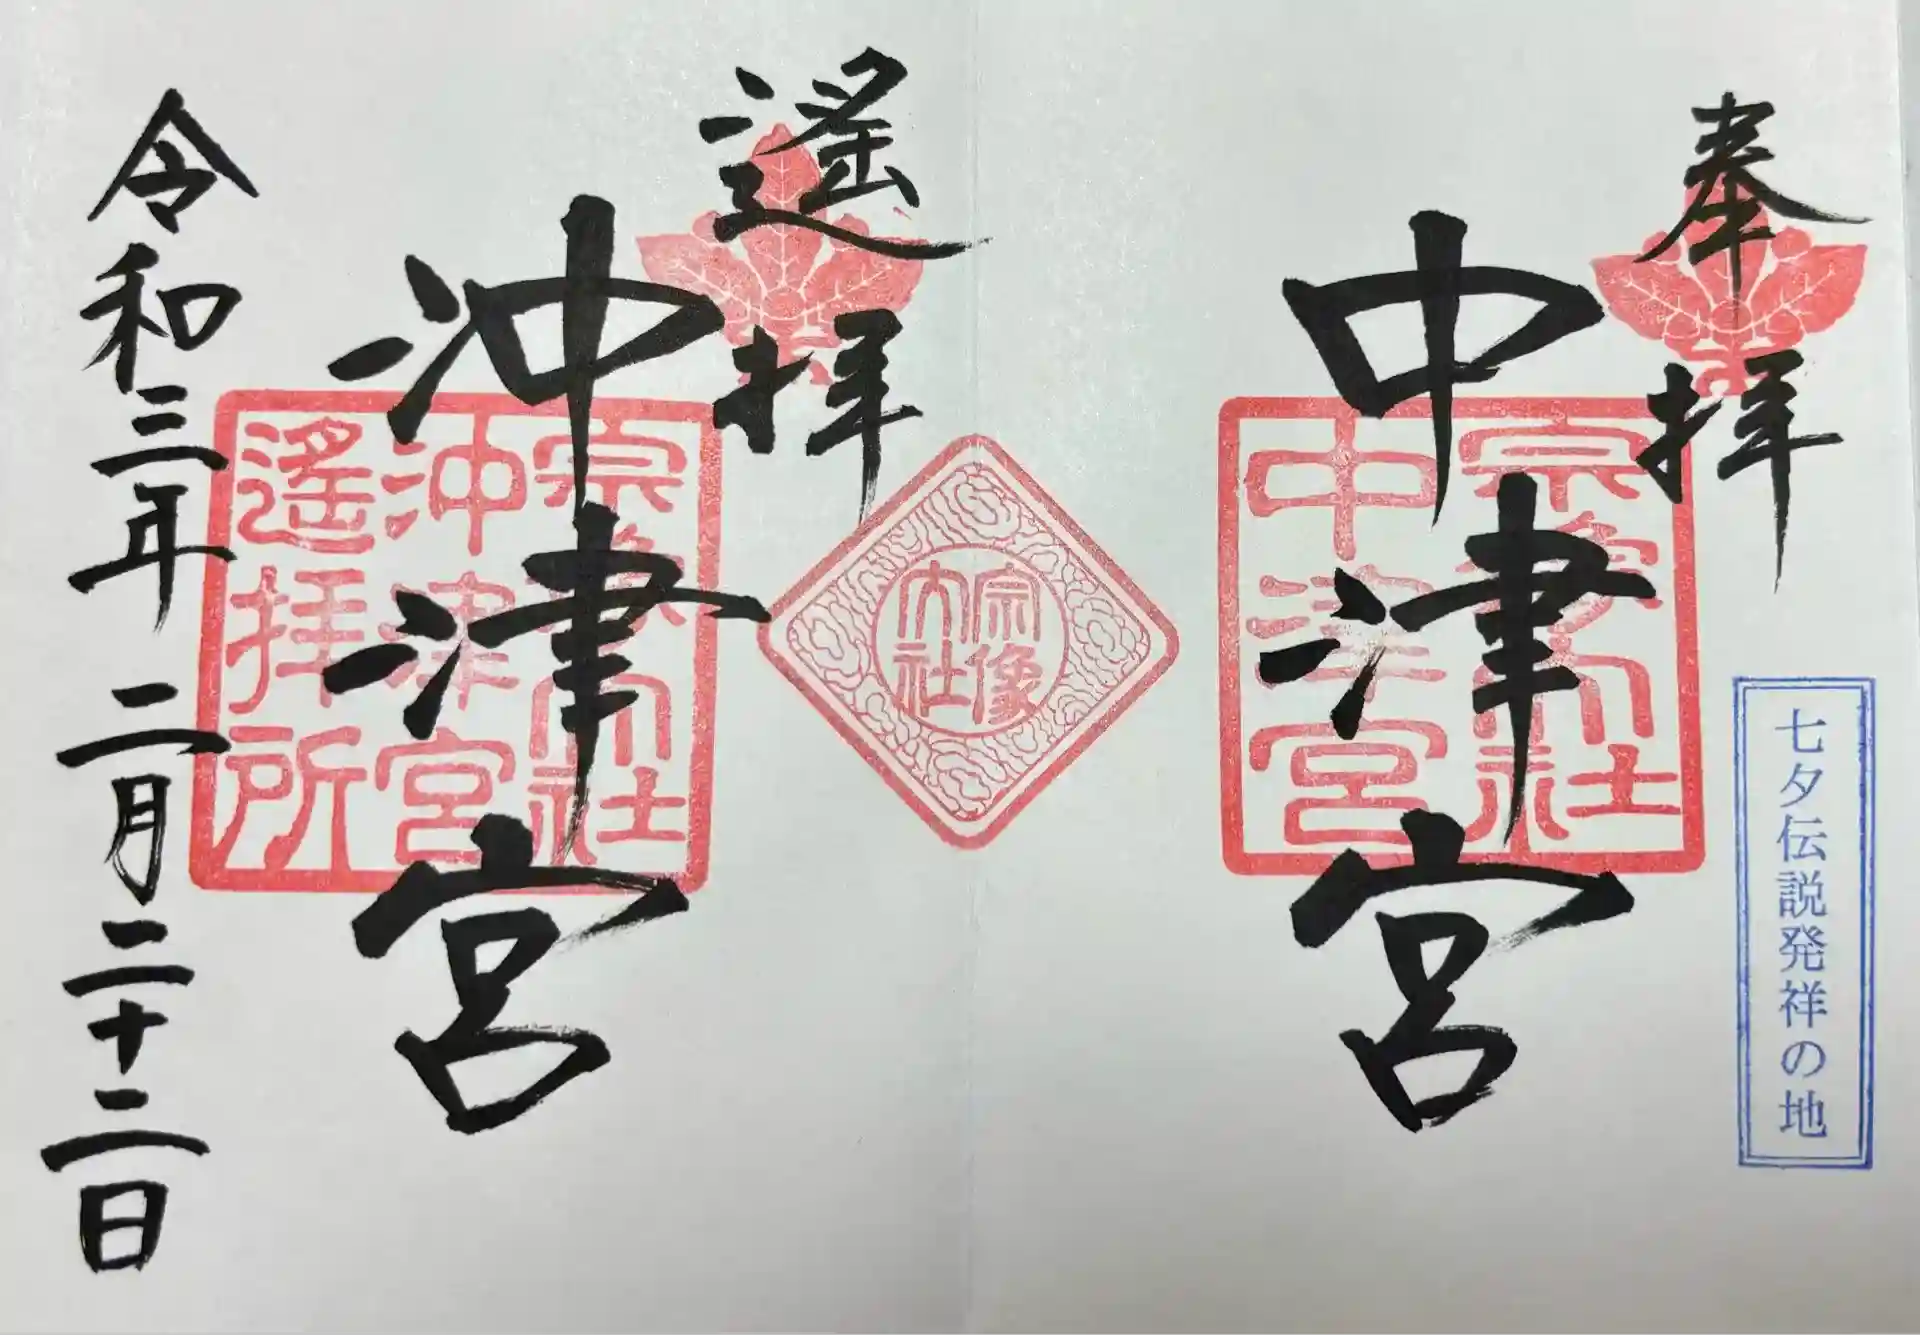 奉拝
中津宮
宗像大社
中津宮
七夕伝説発祥の地
宗像
大社
遙拝
沖津宮
宗像大社
沖津宮
遙拝所
令和三年 二月二十二日